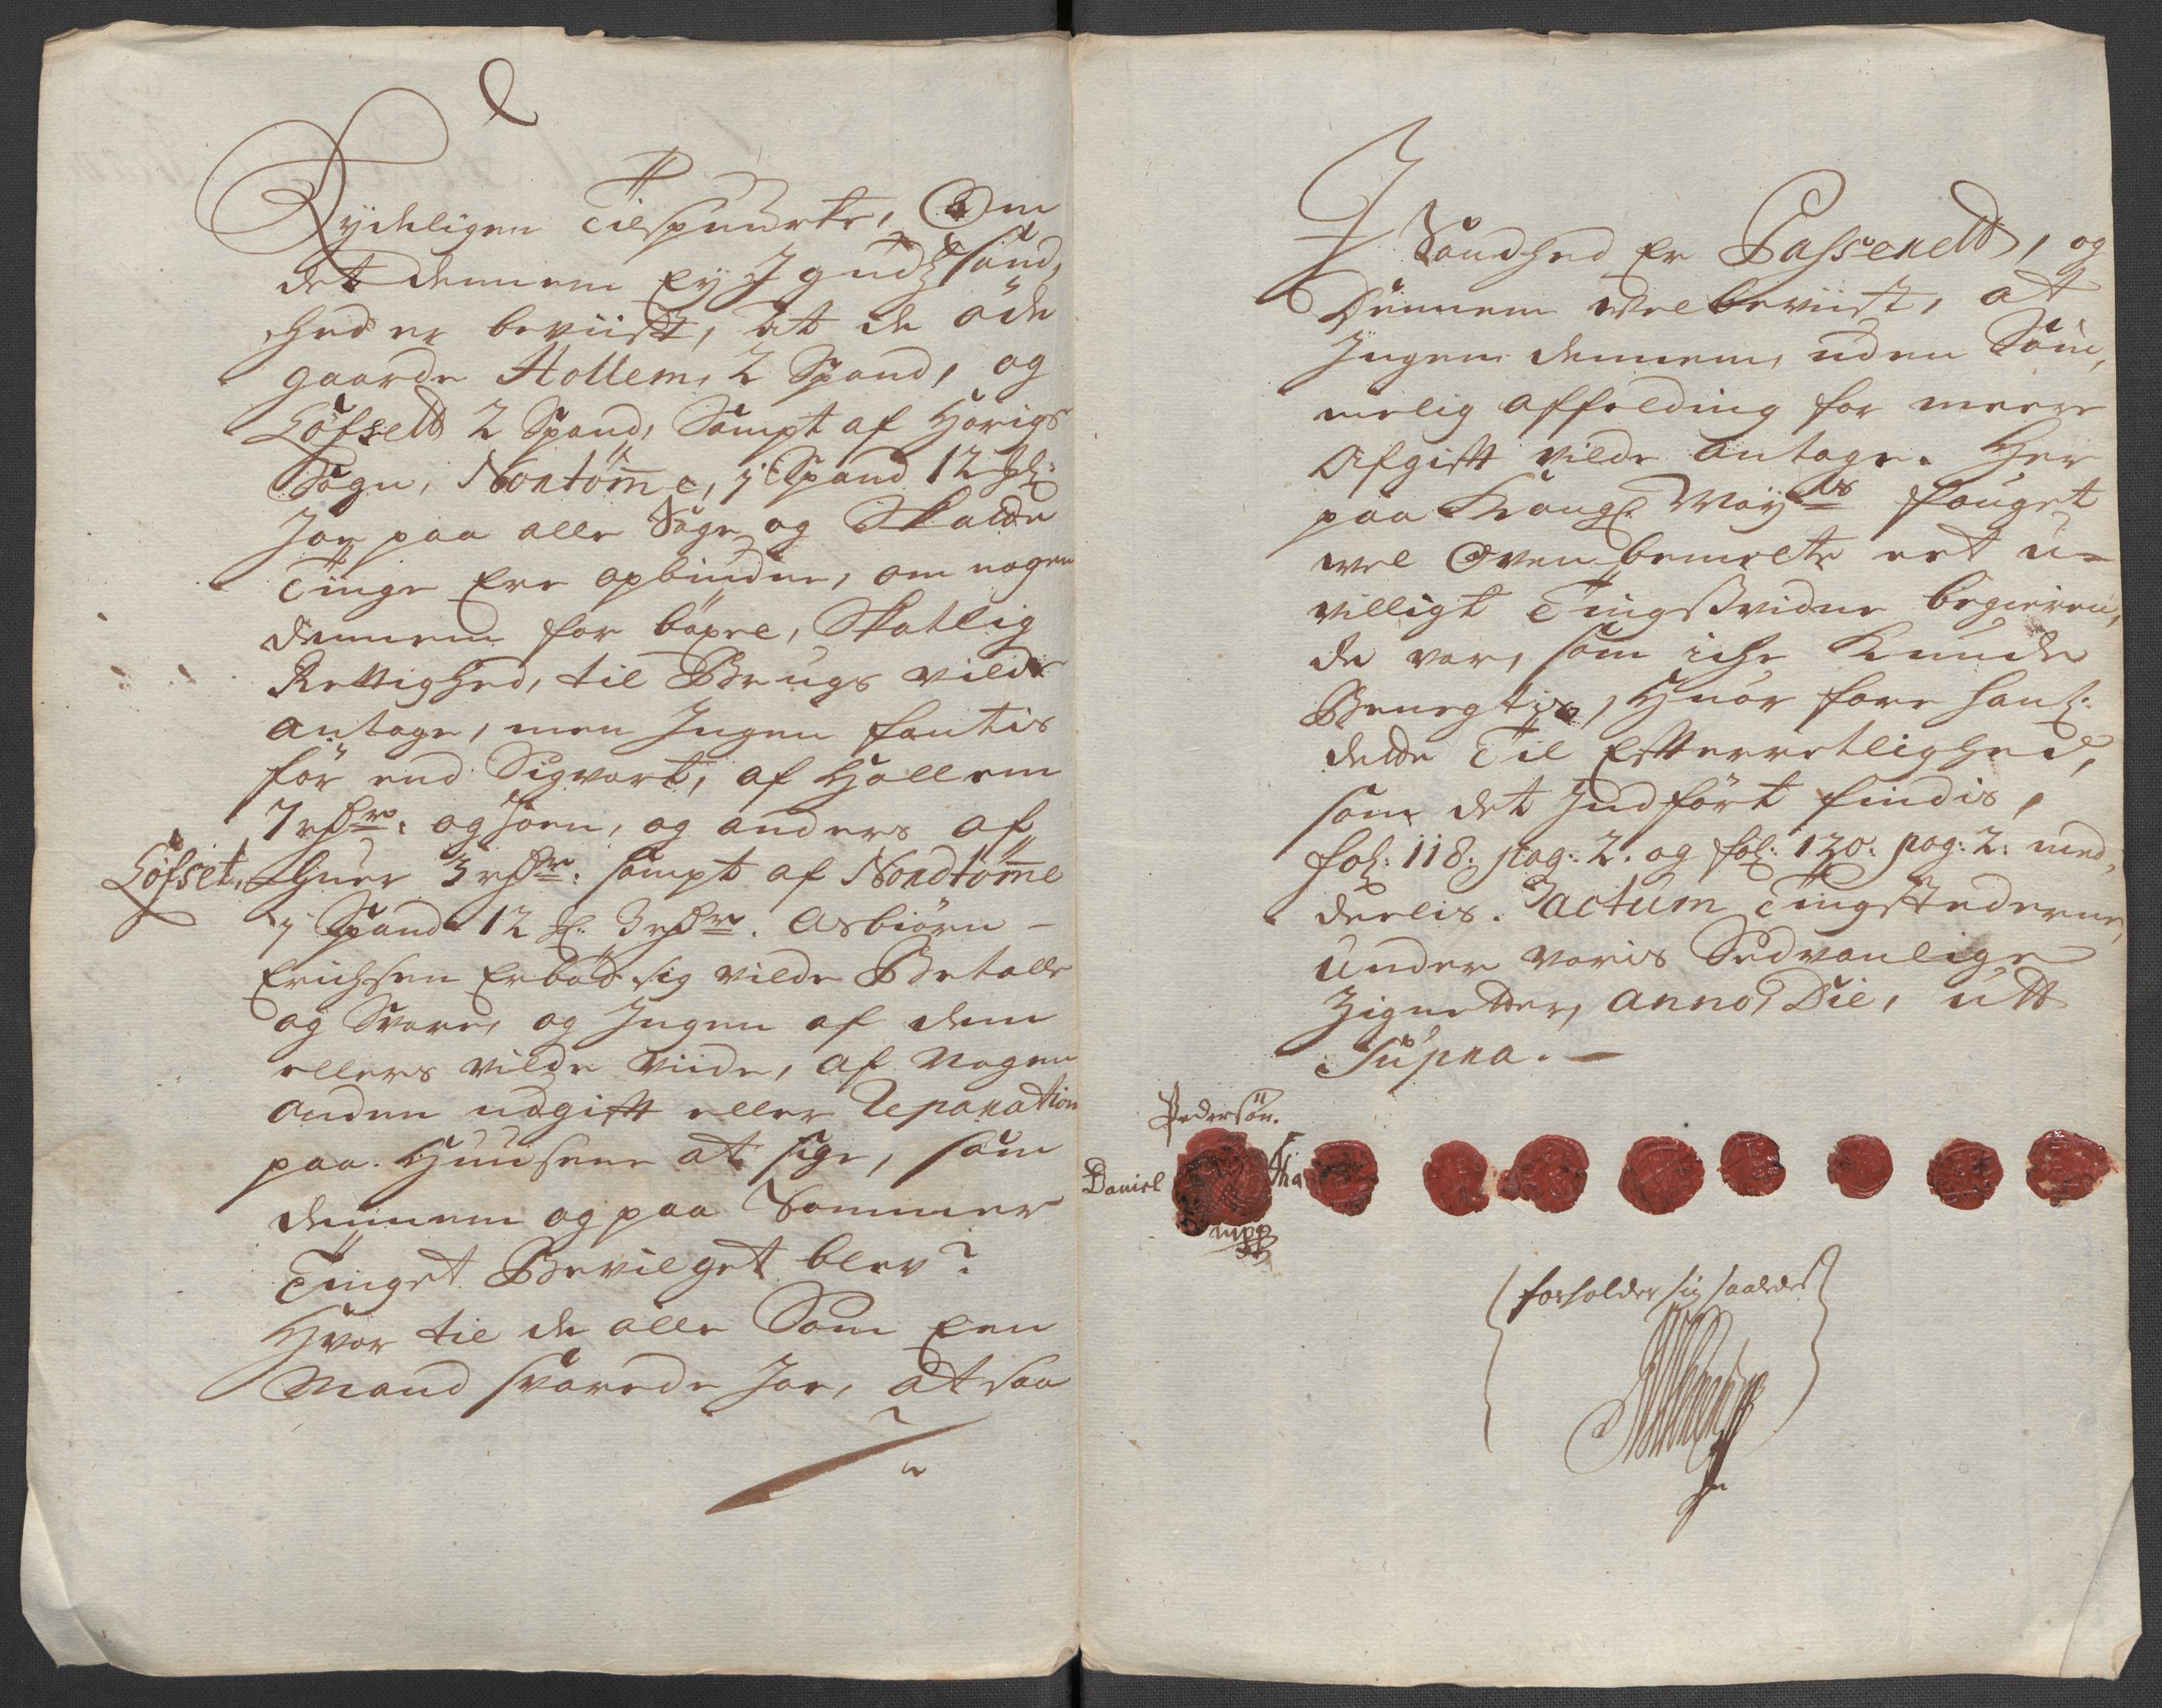 Rychtligen Tilspuurte, Om
det dennem Ey J gudß sand,
hed er beviist, at de øde
gaarde Hollem, 2 Spand, og
Løfsett 2 Spand, Sampt af Hørigs
Sogn, Nontømme, 1 Spand 12 
Jor paa alle Sage og Skatte
Tinge Ere opbudne, om nogen
dennem for bøxel, Skatlig
Rettighed, til Brugs vilde
antage, men Jngen fantis
før end Sigvort, af Hollem
7 rdr: og Joen, og anders af
Løfset, Huer 3 rdr: sampt af Nondtømme
1 Spand 12 3 rdr. Asbiørn –
Erichsen Erbød sig vilde Betalle
og Svare, og Jngen af dem
ellers vilde viide, af Nogen
anden udgift eller Reparation
paa Huusene at sige, som
dennem og paa Sommer
Tinget Bevilget blev?
Hvor til de alle Som Een
Mand svarede Jae, at saa
J Sandhed Er Passeret, og
Dennem Vel beviist, at
Jngen dennem, uden Søm,
melig affelding for meere
Afgift vilde antage. Her
paa Kongl. May:ts fouget
vel Ovenbemelte eet u-
villigt Tingsvidne begieren,
de var, som iche Kunde
Benegtis, Huor fore hanß
dette Til Efterretlighed,
som det Jndført findis,
fol: 118. pag: 2. og fol: 120. pag: 2: med,
deelis. Actum Tingstederne,
Under voris Sedvanlige
Zignetter, Anno, Die, utt
Supra. —
Pedersøn.
Daniel
mpp
forholder sig saaledes